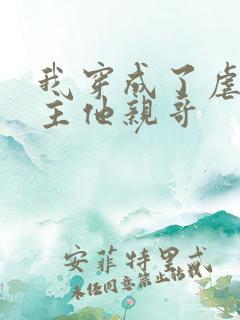 我穿成了虐
主他亲哥
安菲特里忒
未经同意禁止转载